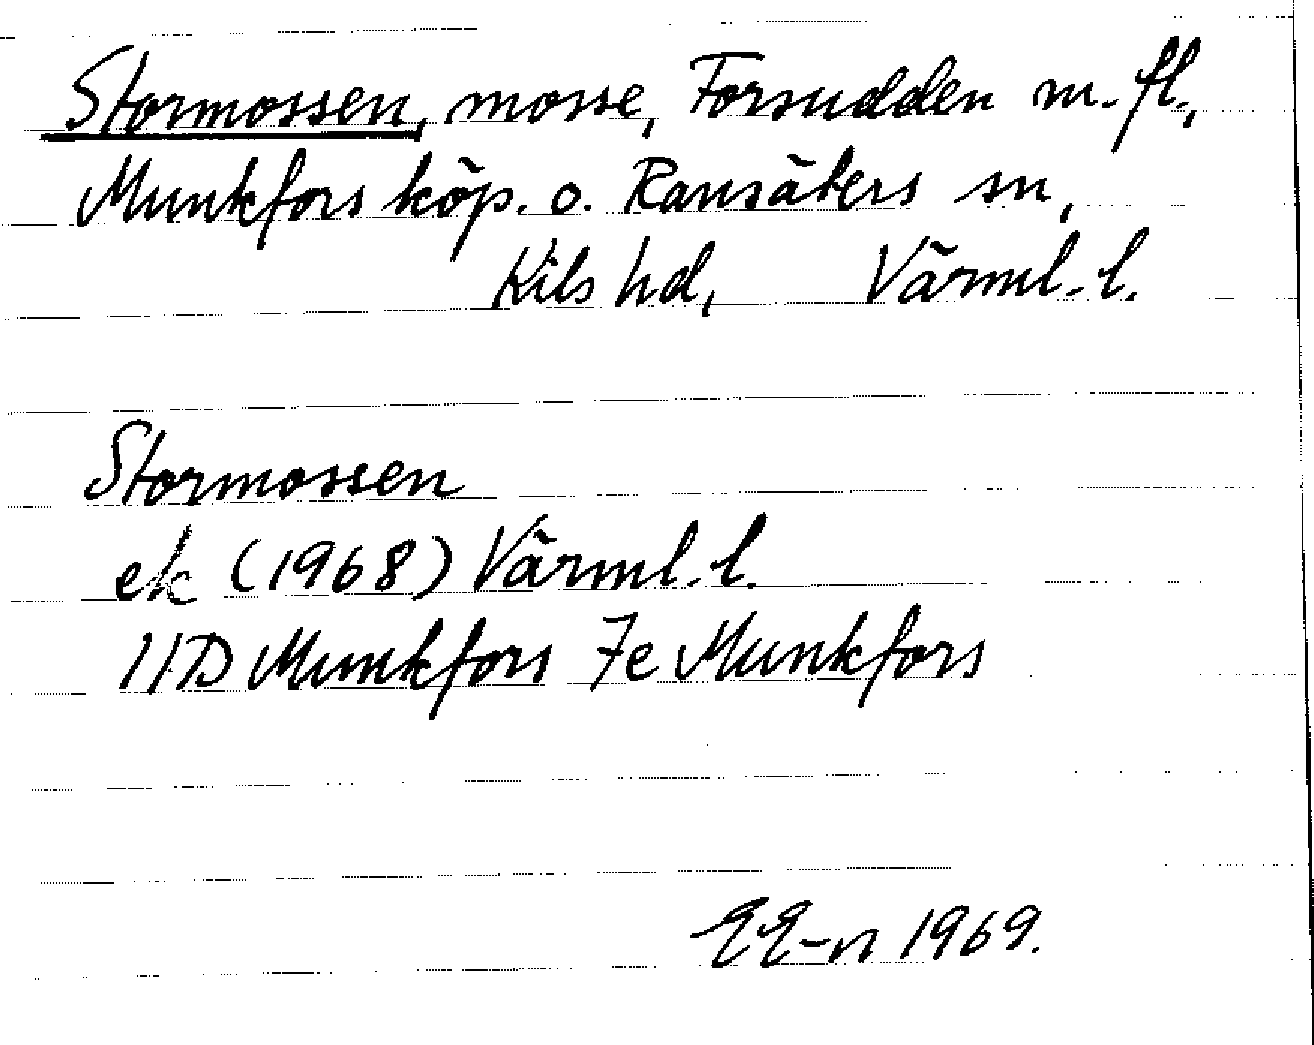 Stormossen, mosse, Forsudden m.fl.,
Munkfors köp. o. Ransäters sn,
Kils hd, Värml.l.
Stormossen
ek (1968) Värml.l.
11D Munkfors 7e Munkfors
EE-n 1969.